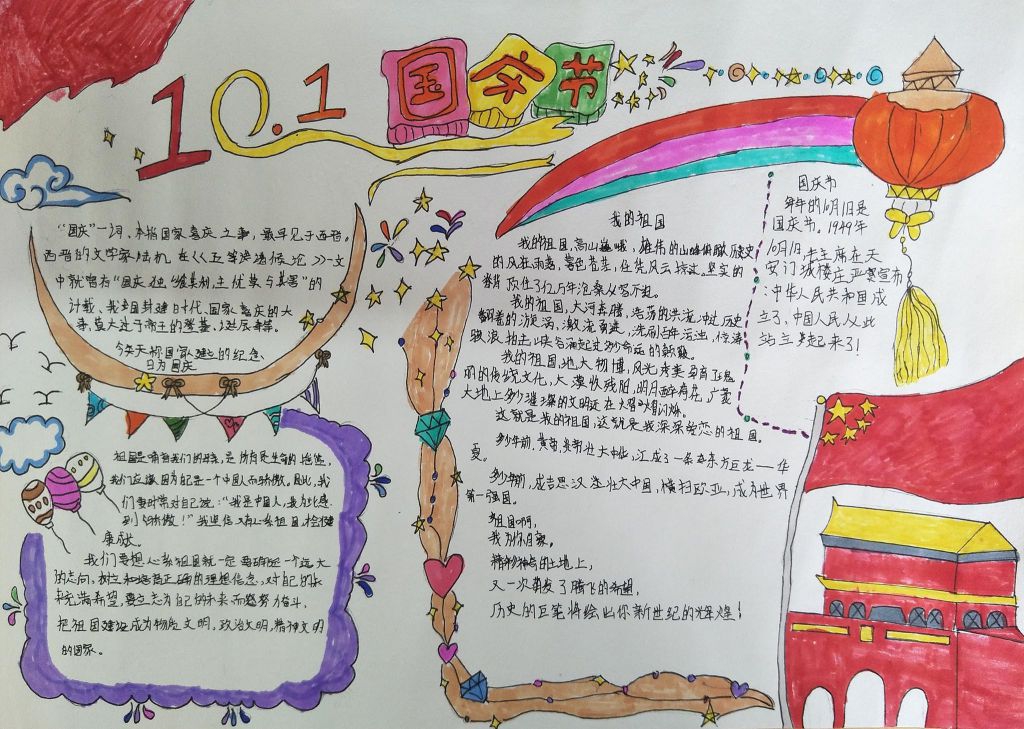 10.1 国庆节
"国庆"一词,本指国家喜庆之事,最早见于西晋。
西晋的文学家陆机在《五等诸侯论》一文
中就曾有"国庆独飨其利,主忧莫与其害"的
记载、我国封建时代、国家喜庆的大
事,莫大过于帝王的
今天称国家建立的纪念
日为国庆
祖国是哺育我们的母亲,是
我们应该因为自己是一个中国人而骄傲。因此,我
们要时常对自己说:"我是中国人,我为此感
到骄傲!"我坚信
康成长。
我们要想心系祖国就一定要确定一个远大
的志向,树立和培育正确的理想信念,对自己的未
来充满希望,要立志为自己的未来而努力奋斗,
把祖国建设成为物质文明,政治文明,精神文明
的国家。
我的祖国
我的祖国,高山巍峨,雄伟的山峰俯瞰历史
的风狂雨落,暮色苍茫,任凭风云掠过。坚实的
脊背顶住了亿万年沧桑从容不迫。
我的祖国,大河奔腾,浩荡的洪流冲过历史
翻卷的漩涡,激流勇进,洗刷百年污浊,惊涛
骇浪拍击峡谷涌起过多少命运的颠簸。
我的祖国,地大物博,风光秀美孕育了瑰
丽的传统文化,大漠收残阳,明月醉荷花,广袤
大地上多少璀璨的文明还在熠熠闪烁。
这就是我的祖国,这就是我深深爱恋的祖国。
多少年前,黄帝,炎帝壮大中华,汇成了一条東方巨龙——华
夏。
多少年前,成吉思汉 壮大中国,横扫欧亚,成为世界
第一强国。
祖国啊,
我为你自豪。
精彩神奇的土地上,
又一次萌发了腾飞的希望,
历史的巨笔将绘出你新世纪的辉煌!
国庆节
每年的10月1日是
国庆节。1949年
10月1日,毛主席在天
安门城楼庄严宣布
:中华人民共和国成
立了,中国人民从此
站立起来了!